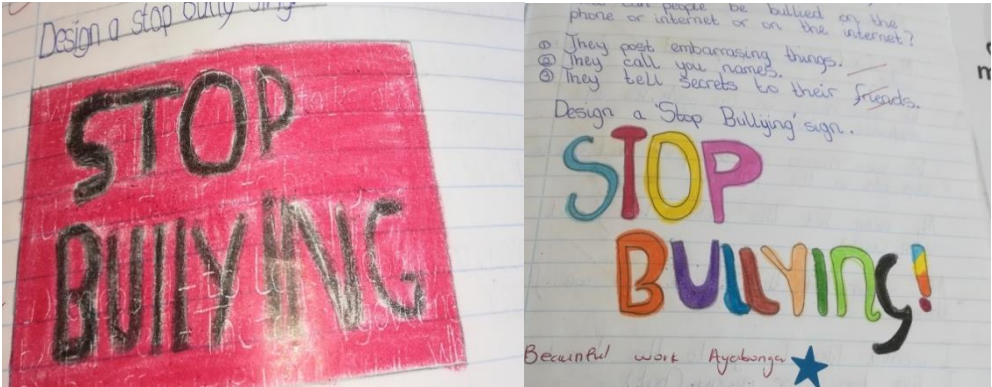 Design a stop bully sing
STOP
BULLYING
can people be bullied on the
phone or internet or on the internet?
① They post embarrasing things.
② They call you names.
③ They tell secrets to their friends.
Design a 'Stop Bullying' sign.
STOP
BULLYING!
Beautiful work Ayabonga